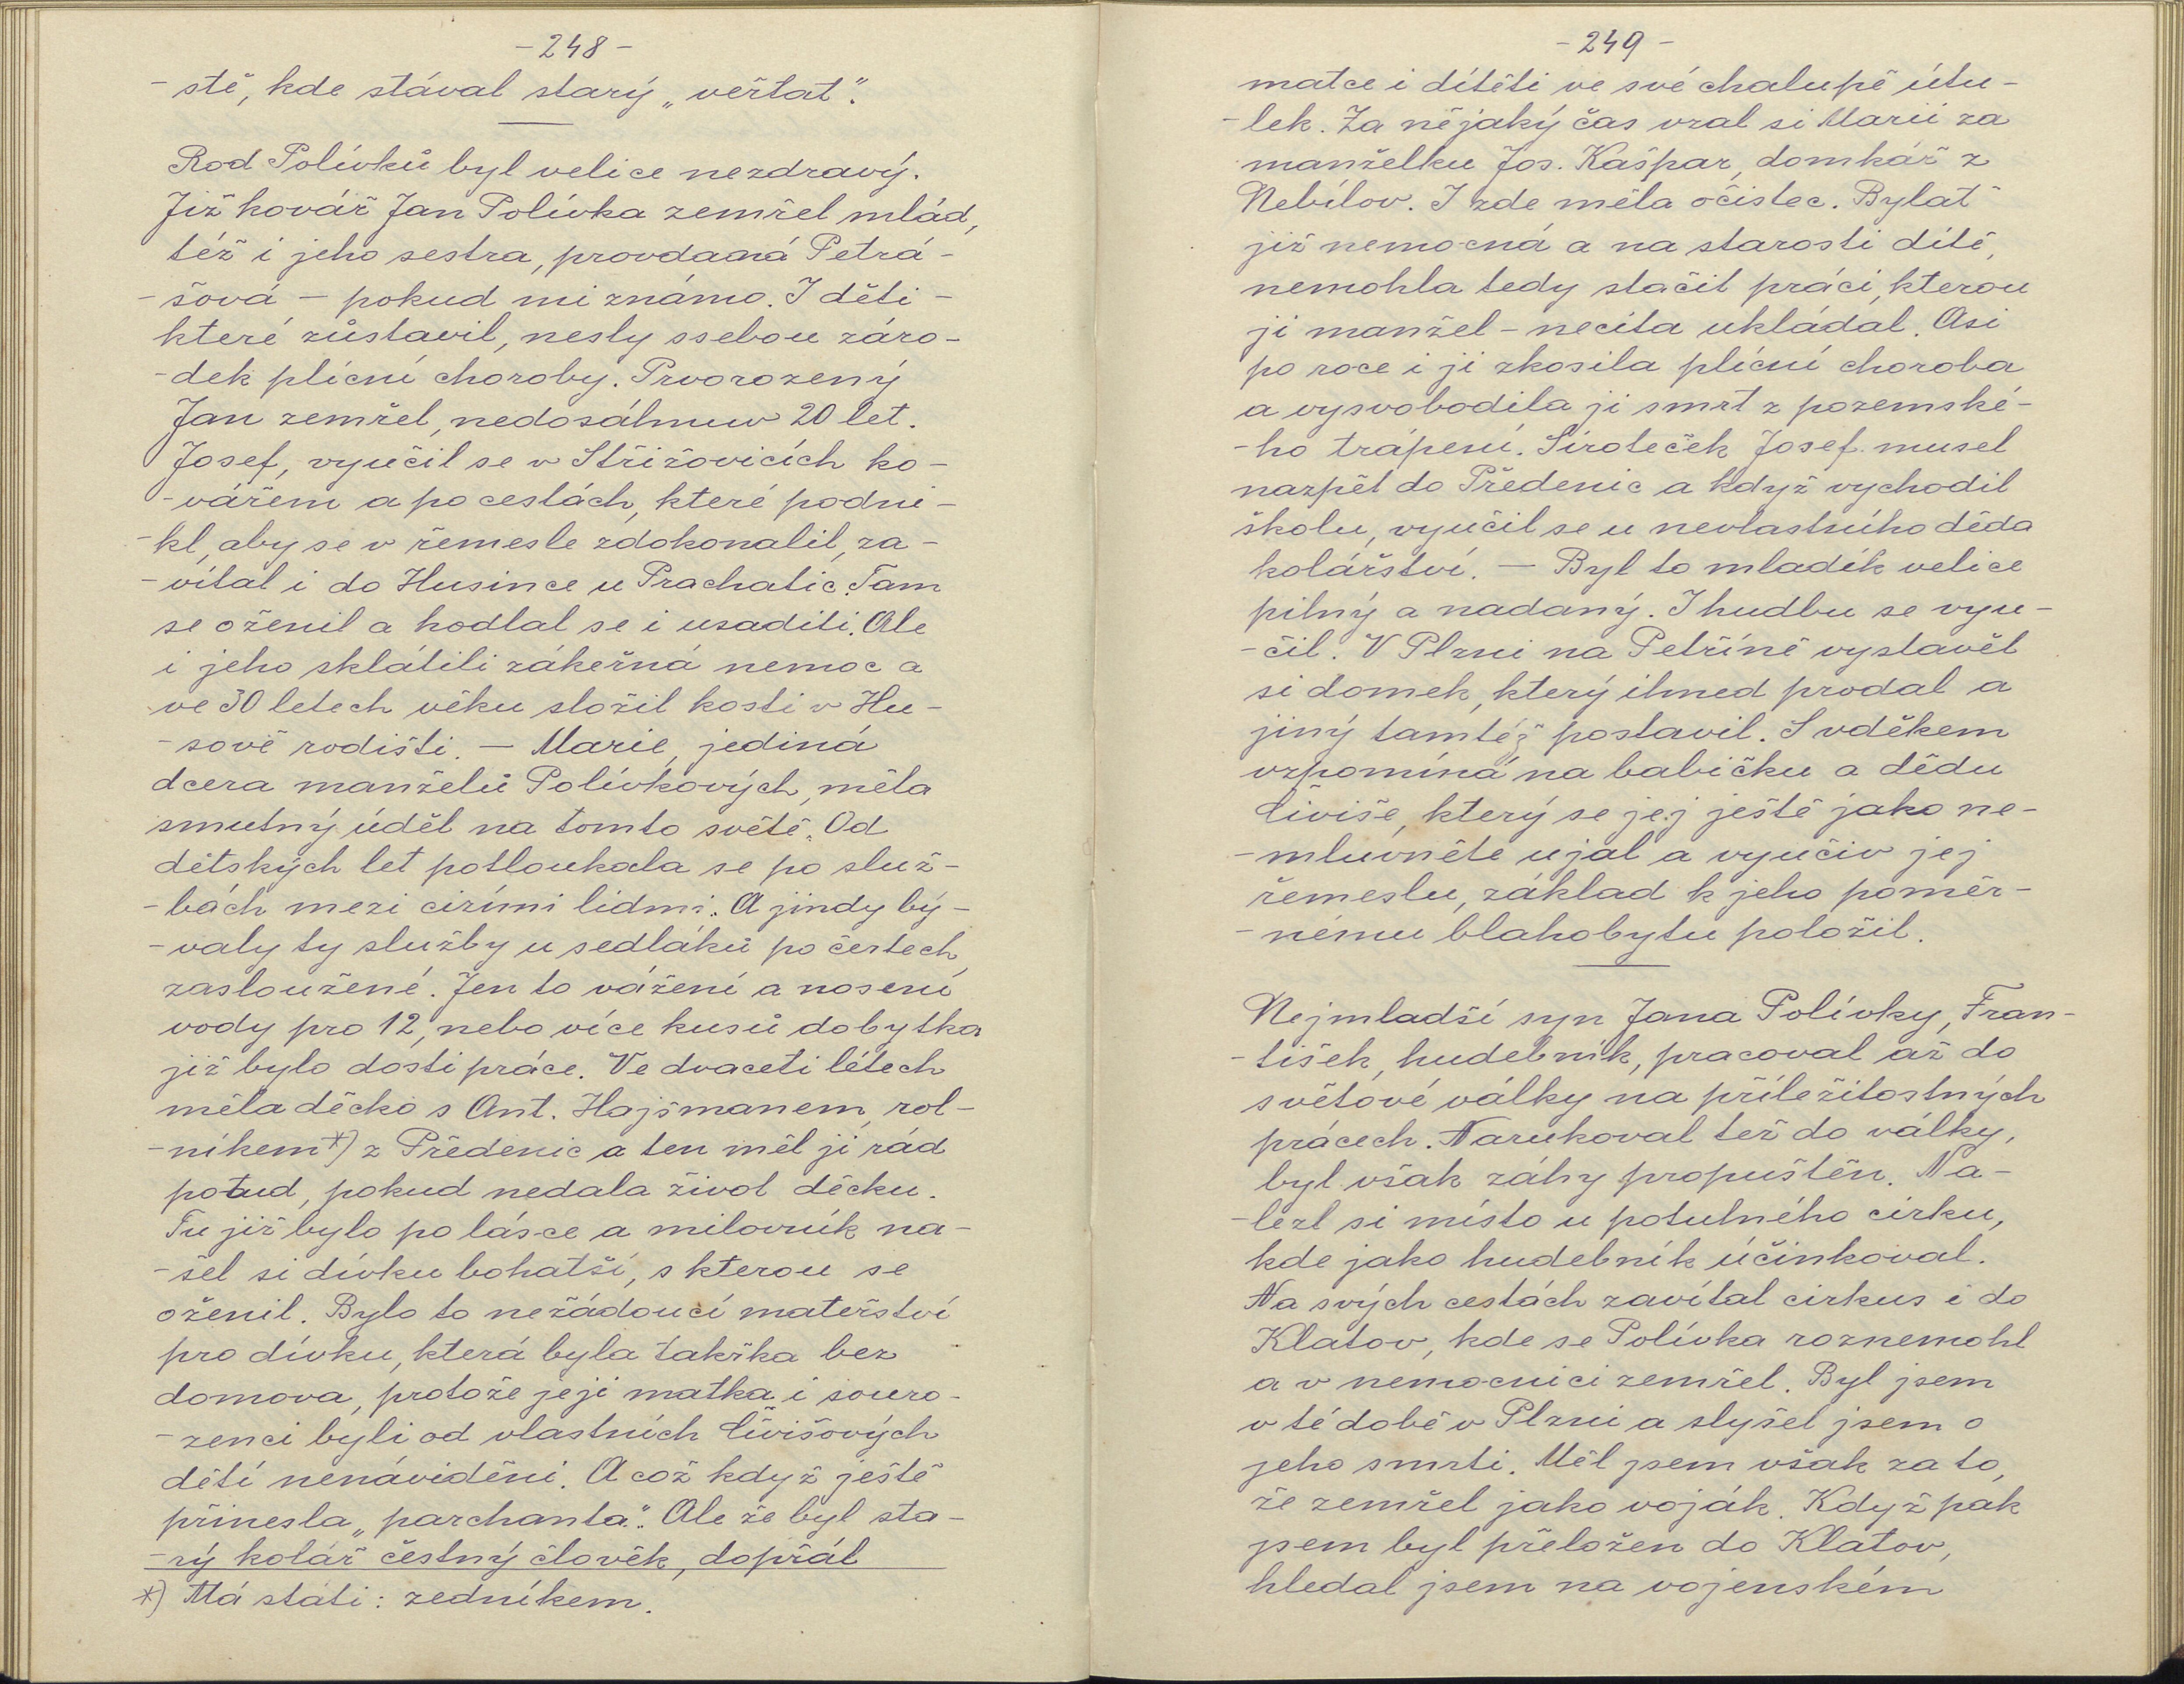 - 248 -
- stě, kde stával starý „vertat".
Rod Polívků byl velice nezdravý.
Již kovář Jan Polívka zemřel mlád,
též i jeho sestra, provdaná Petrá-
- šová - pokud mi známo. I děti -
které zůstavil, nesly ssebou záro-
- dek plícní choroby. Prvorozený
Jan zemřel, nedosáhnuv 20 let.
Josef, vyučil se v Střížovicích ko-
- vářem a po cestách, které podni-
- kl, aby se v řemesle zdokonalil, za-
- vítal i do Husince u Prachatic. Tam
se oženil a hodlal se i usaditi. Ale
i jeho sklátili zákeřná nemoc a
ve 30 letech věku složil kosti v Hu-
- sově rodišti. - Marie, jediná
dcera manželů Polívkových, měla
smutný úděl na tomto světě. Od
dětských let potloukala se po služ-
- bách mezi cizími lidmi. A jindy bý-
- valy ty služby u sedláků po čertech
zasloužené. Jen to vážení a nosení
vody pro 12, nebo více kusů dobytka
již bylo dosti práce. Ve dvaceti létech
měla děcko s Ant. Hajšmanem, rol-
- níkem*) z Předenic a ten měl ji rád
potud, pokud nedala život děcku.
Tu již bylo po lásce a milovník na-
- šel si dívku bohatší, s kterou se
oženil. Bylo to nežádoucí mateřství
pro dívku, která byla takřka bez
domova, protože její matka i souro-
- zenci byli od vlastních Čivišových
dětí nenáviděni. A což když ještě
přinesla „parchanta". Ale že byl sta-
- rý kolář čestný člověk, dopřál
*) Má státi: zedníkem.
- 249 -
matce i dítěti ve své chalupě útu-
- lek. Za nějaký čas vzal si Marii za
manželku Jos. Kašpar, domkář z
Nebílov. I zde měla očistec. Bylať
již nemocná a na starosti dítě,
nemohla tedy stačit práci, kterou
ji manžel - necita ukládal. Asi
po roce i ji zkosila plícní choroba
a vysvobodila ji smrt z pozemské-
- ho trápení. Siroteček Josef musel
nazpět do Předenic a když vychodil
školu, vyučil se u nevlastního děda
kolářství. - Byl to mladík velice
pilný a nadaný. I hudbu se vyu-
- čil. V Plzni na Petříně vystavěl
si domek, který ihned prodal a
jiný tamtéž postavil. S vděkem
vzpomíná na babičku a dědu
Čiviše, který se jej ještě jako ne-
- mluvněte ujal a vyučiv jej
řemeslu, základ k jeho poměr-
- nému blahobytu položil.
Nejmladší syn Jana Polívky, Fran-
- tišek, hudebník, pracoval až do
světové války na příležitostných
prácech. Narukoval též do války,
byl však záhy propuštěn. Na-
- lezl si místo u potulného cirku,
kde jako hudebník účinkoval.
Na svých cestách zavítal cirkus i do
Klatov, kde se Polívka roznemohl
a v nemocnici zemřel. Byl jsem
v té době v Plzni a slyšel jsem o
jeho smrti. Měl jsem však za to,
že zemřel jako voják. Když pak
jsem byl přeložen do Klatov,
hledal jsem na vojenském